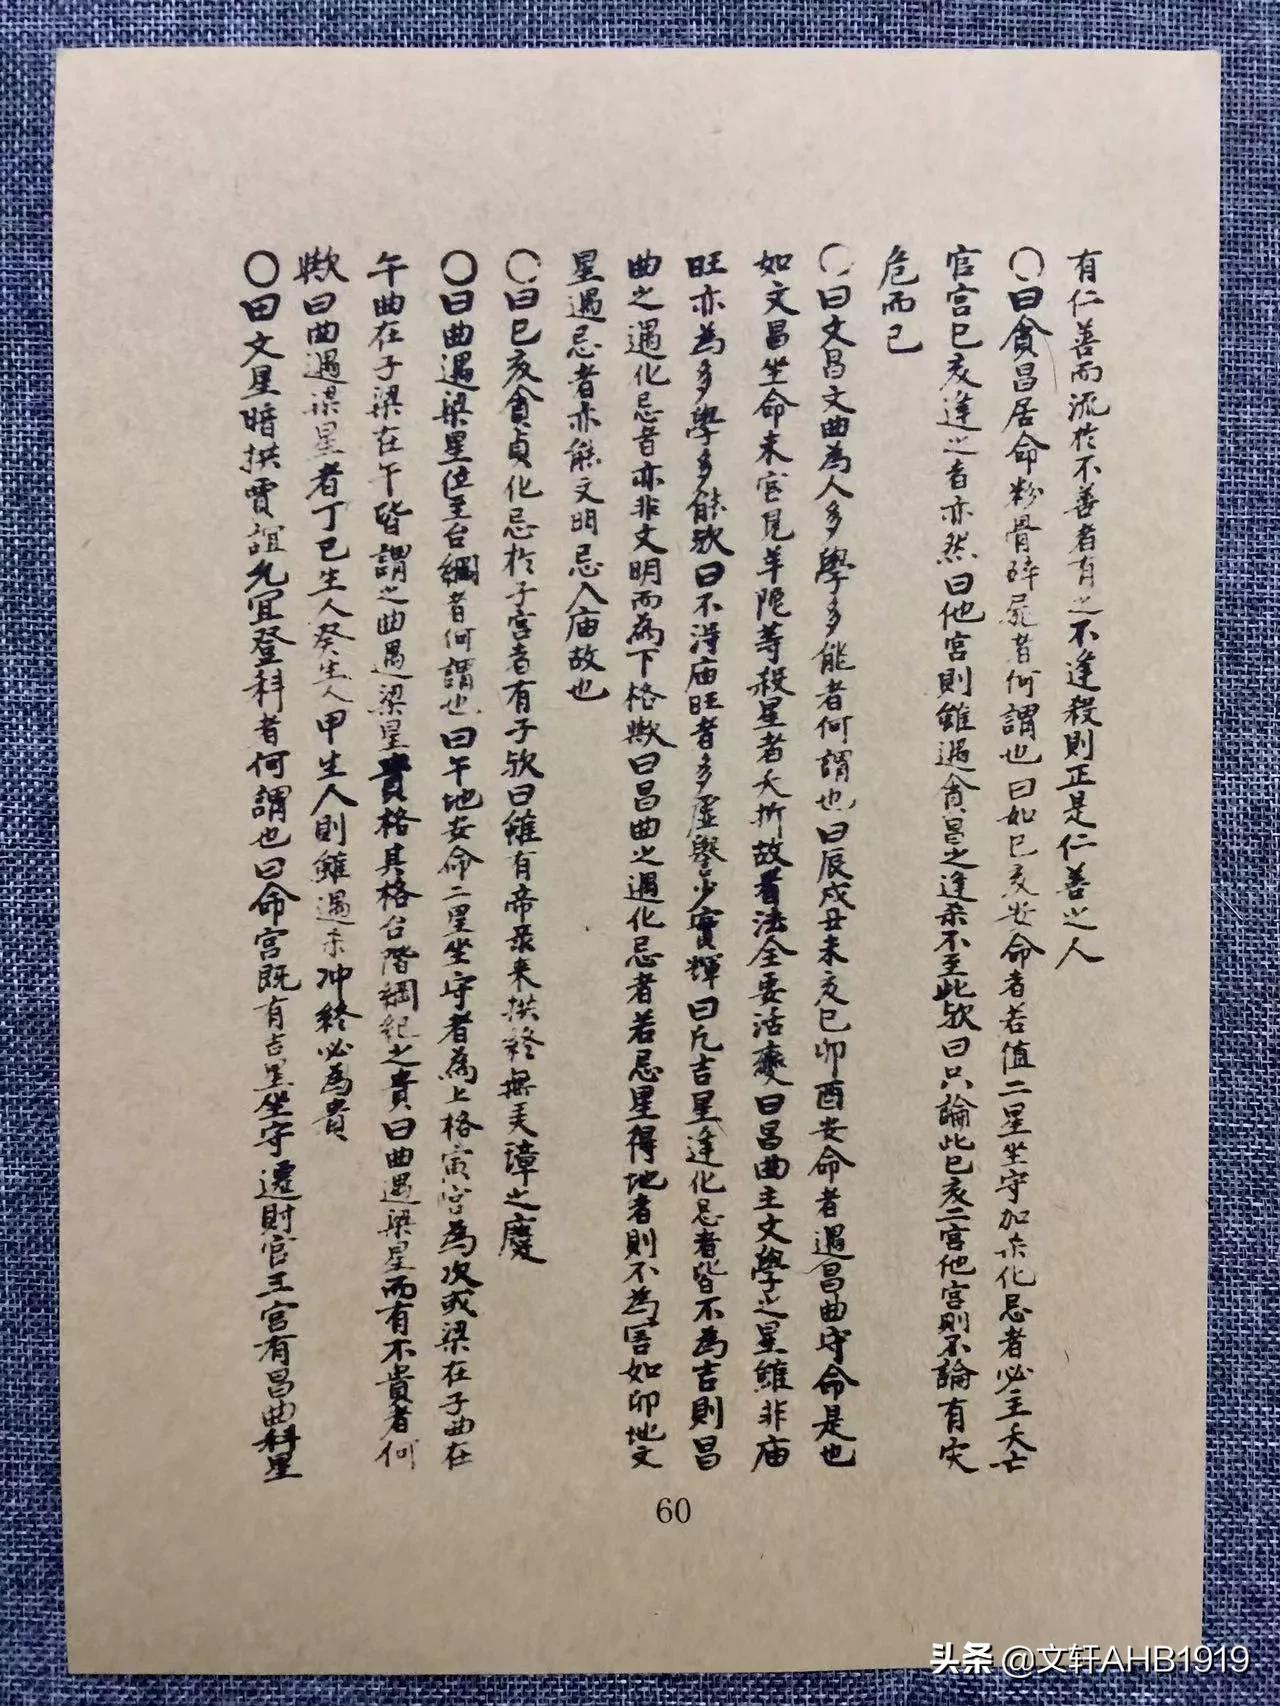 有仁善而流於不善者有之不逢殺則正是仁善之人
〇曰貪昌居命粉骨碎屍者何謂也曰如巳亥安命者若值二星坐守加杀化忌者必主夭亡
官宮巳亥逢之者亦然曰他宮則雖遇貪昌之逢杀不至此欤曰只論此巳亥二宮他宮則不論有灾
危而已
〇曰文昌文曲為人多學多能者何謂也曰辰戌丑未亥巳卯酉安命者遇昌曲守命是也
如文昌坐命未宮見羊陀等殺星者夭折故看法全要活爽曰昌曲主文學之星雖非庙
旺亦為多學多能欤曰不得庙旺者多虛譽少實輝曰凡吉星逢化忌者皆不為吉則昌
曲之遇化忌者亦非文明而為下格欤曰昌曲之遇化忌者若忌星得地者則不為害如卯地文
星遇忌者亦能文明忌入庙故也
〇曰巳亥貪貞化忌於子宮者有子欤曰雖有帝彔来拱終無弄璋之慶
〇曰曲遇梁星位至台綱者何謂也曰午地安命二星坐守者為上格寅宮為次或梁在子曲在
午曲在子梁在午皆謂之曲遇梁星貴格其格台階綱紀之貴曰曲遇梁星而有不貴者何
欤曰曲遇梁星者丁己生人癸生人甲生人則雖遇杀冲終必為貴
〇曰文星暗拱賈誼允宜登科者何謂也曰命宮既有吉星坐守遷財官三宮有昌曲科星
60
头条 @文轩AHB1919